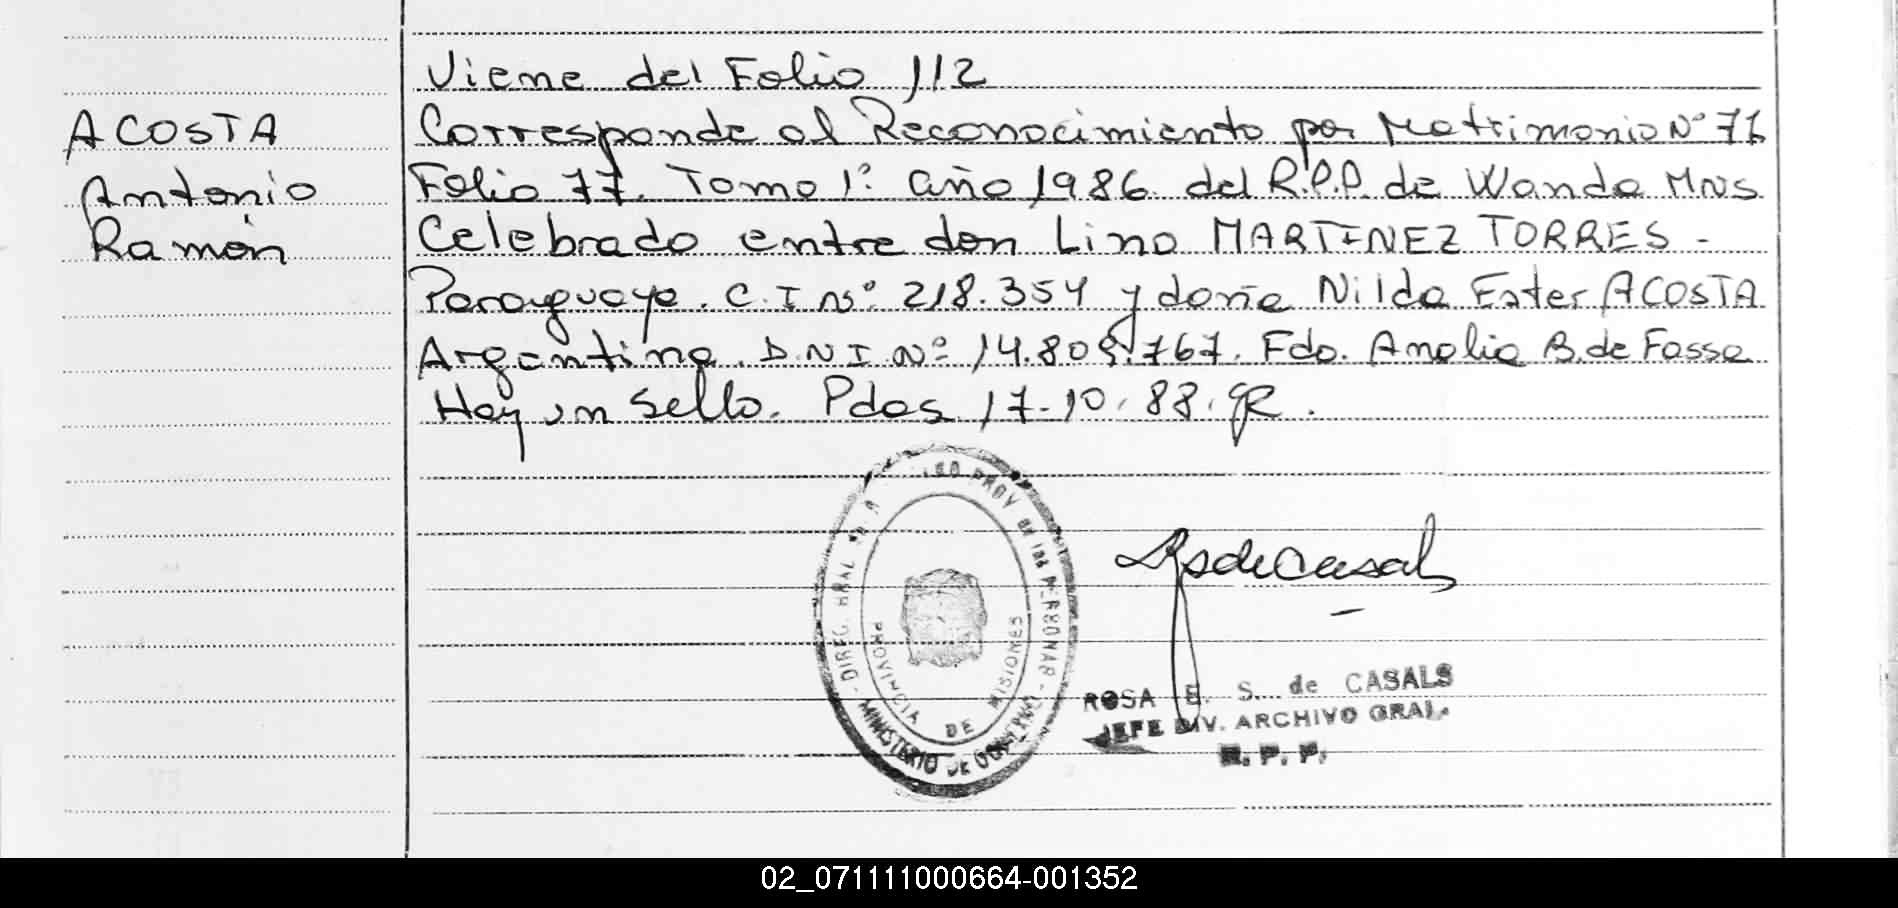 Viene del Folio 112
ACOSTA
Antonio
Ramón
Corresponde al Reconocimiento por Matrimonio Nº 76
Folio 77. Tomo 1º año 1986 del R.P.P. de Wanda Mns
Celebrado entre don Lino MARTINEZ TORRES -
Paraguayo. C.I Nº 218.354 y doña Nilda Ester ACOSTA
Argentina. D.N.I. Nº 14.805.767. Fdo. Amalia B. de Fossa
Hay un sello. Pdas 17-10-88. gR.
DIREC. GRAL PROV de las PERSONAS
PROVINCIA DE MISIONES
MINISTERIO DE GOBIERNO
ROSA E. S. de CASALS
JEFE DIV. ARCHIVO GRAL.
R. P. P.
02_071111000664-001352